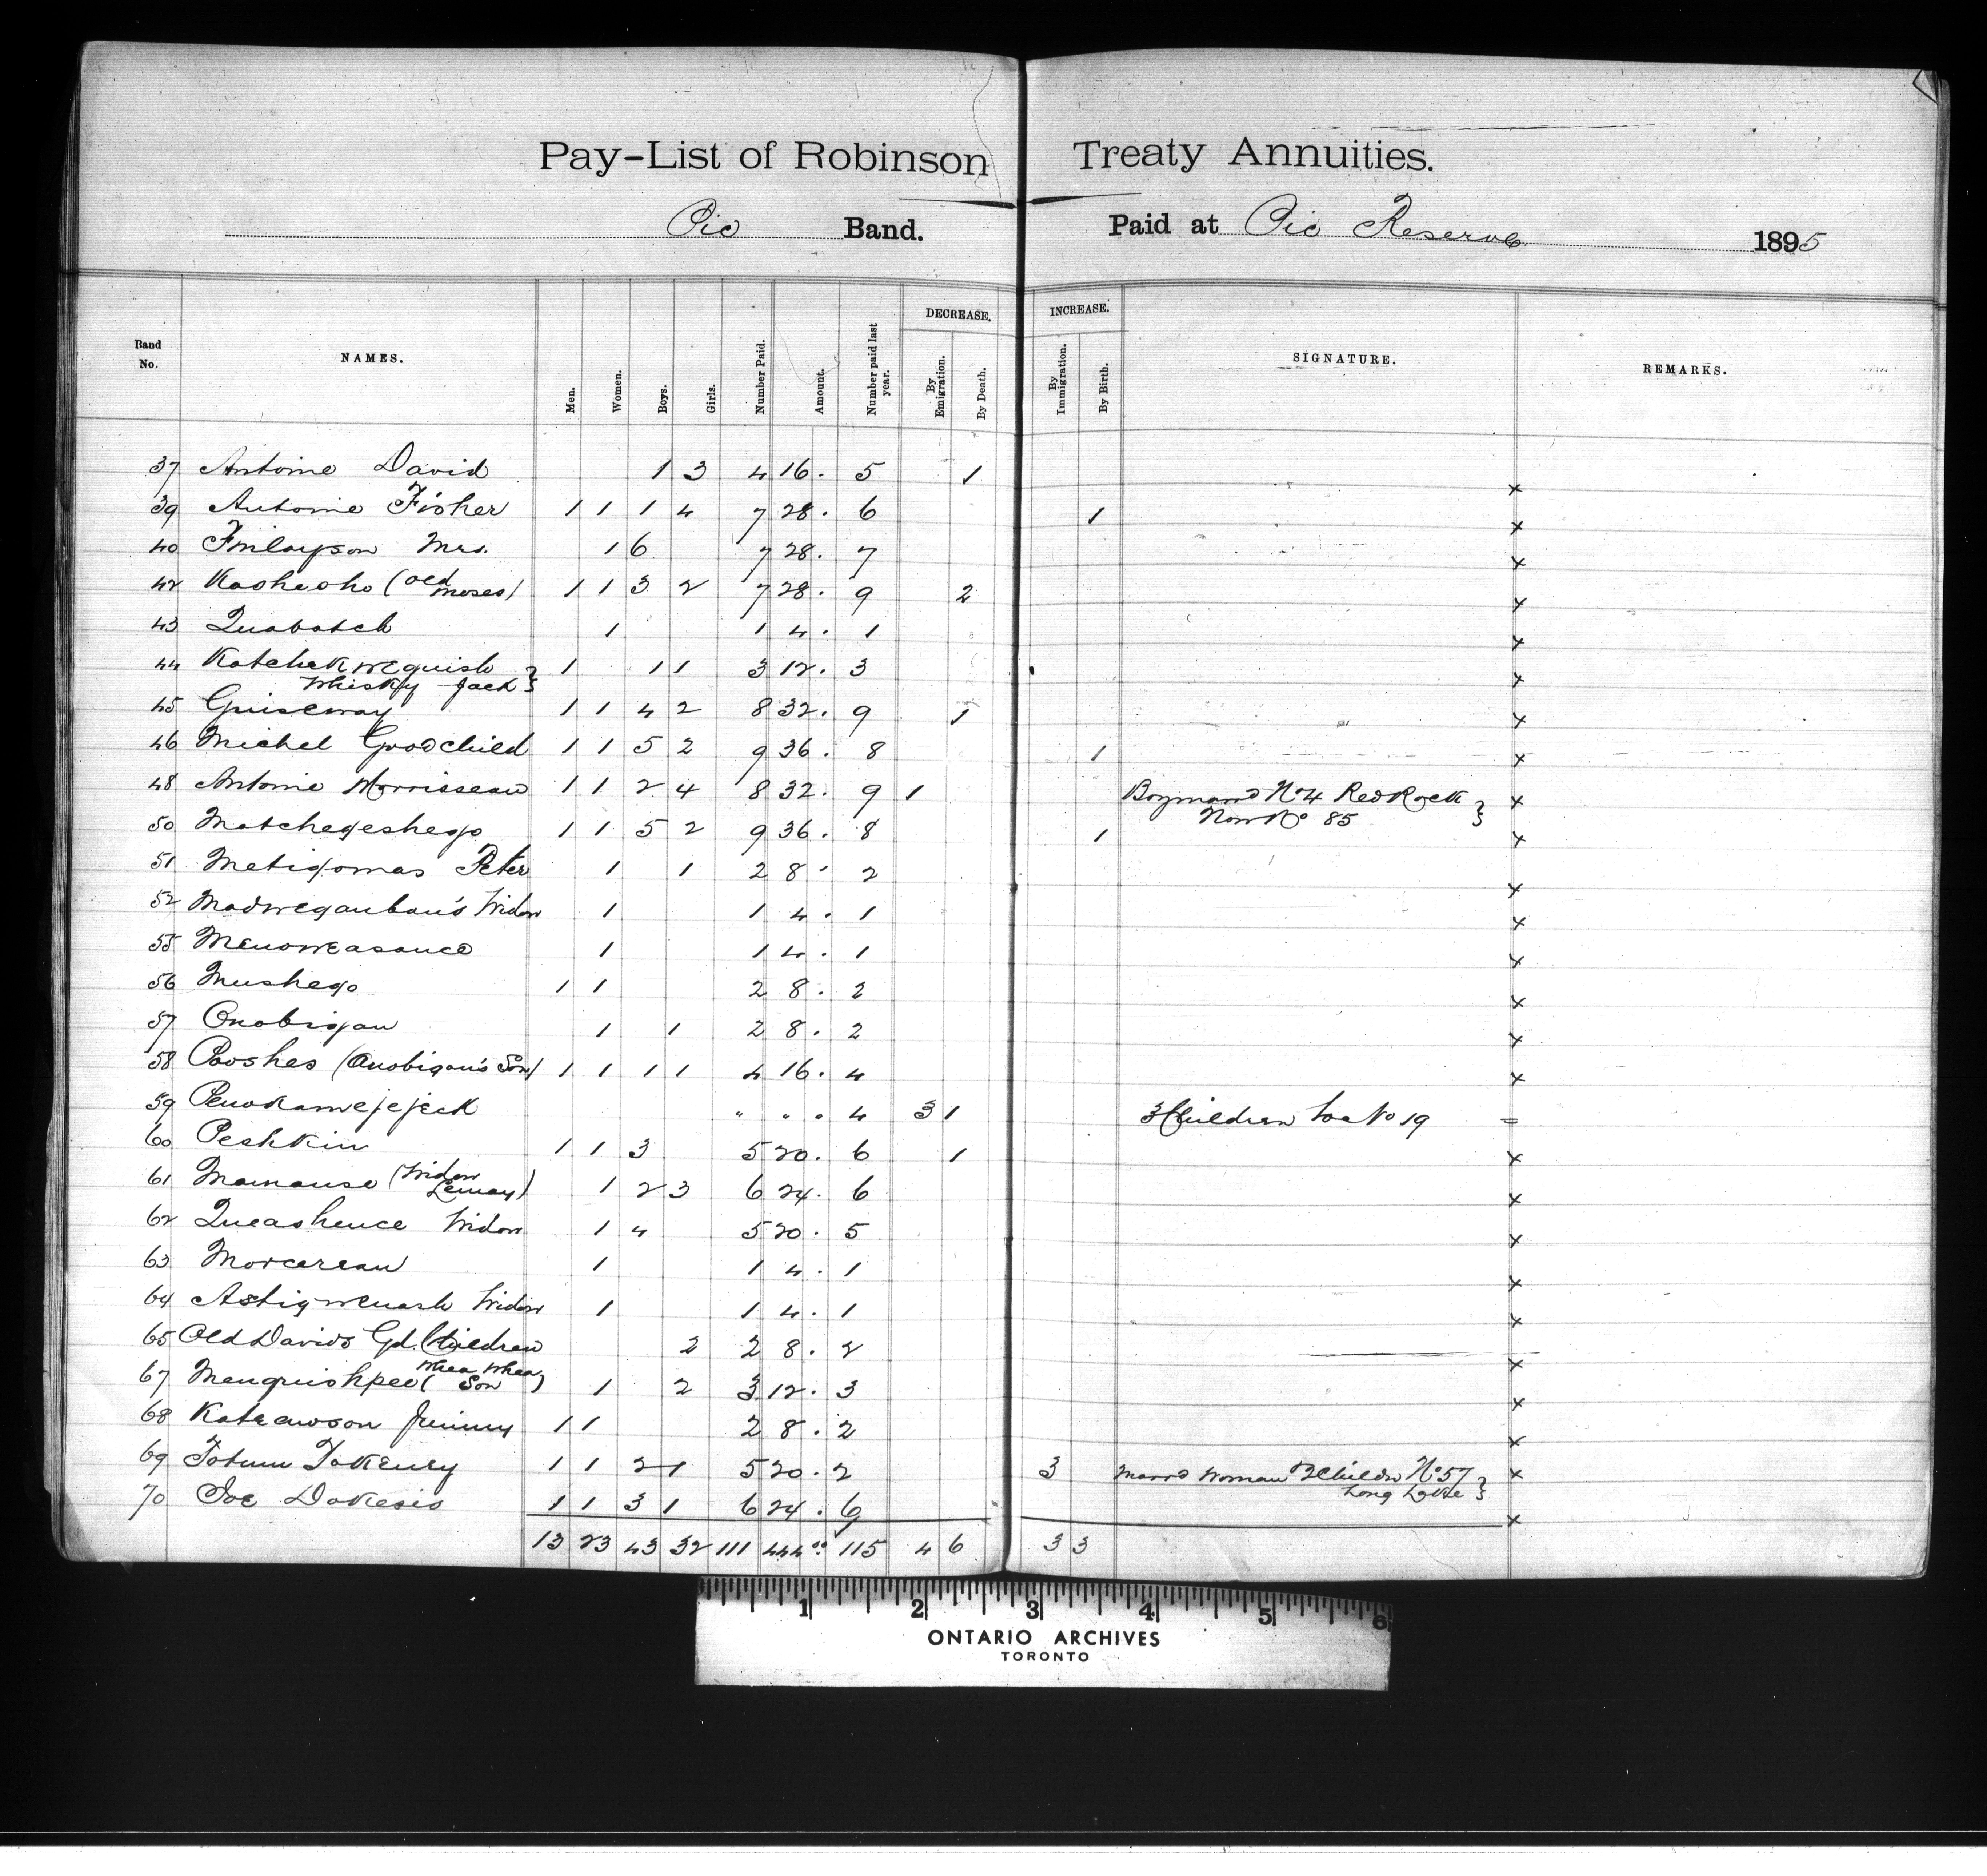 Pay-List of Robinson Treaty Annuities.
Pic Band. Paid at Pic Reserve 1895
Band No. NAMES. Men. Women. Boys. Girls. Number Paid. Amount. Number paid last year. DECREASE. By Emigration. By Death. INCREASE. By Immigration. By Birth. SIGNATURE. REMARKS.
37 Antoine David 1 3 4 16. 5 1 x
39 Antoine Fisher 1 1 1 4 7 28. 6 1 x
40 Finlayson Mrs. 1 6 7 28. 7 x
42 Kashesho (Old Moses) 1 1 3 2 7 28. 9 2 x
43 Quabatch 1 1 4. 1 x
44 Katchekwequish Whisky Jack } 1 1 1 3 12. 3 x
45 Guiseway 1 1 4 2 8 32. 9 1 x
46 Michel Goodchild 1 1 5 2 9 36. 8 1 x
48 Antoine Morrisseau 1 1 2 4 8 32. 9 1 Boy marrd No 4 Red Rock } x
Now No 85
50 Matchegeshego 1 1 5 2 9 36. 8 1 x
51 Metigomas Peter 1 1 2 8. 2 x
52 Madweganban's Widow 1 1 4. 1 x
55 Menoweasance 1 1 4. 1 x
56 Mushego 1 1 2 8. 2 x
57 Onobigan 1 1 2 8. 2 x
58 Pooshes (Onobigan's Son) 1 1 1 1 4 16. 4 x
59 Penokamejejeck " " " 4 3 1 3 Children to No 19 =
60 Peshkin 1 1 3 5 20. 6 1 x
61 Mamause (Widow Lemay) 1 2 3 6 24. 6 x
62 Queashence Widow 1 4 5 20. 5 x
63 Morcereau 1 1 4. 1 x
64 Astigwenash Widow 1 1 4. 1 x
65 Old Davids Gd. Children 2 2 8. 2 x
67 Menquishpee (Whea Whea Son) 1 2 3 12. 3 x
68 Kateawson Jimmy 1 1 2 8. 2 x
69 Totum Tokeney 1 1 2 1 5 20. 2 3 marrd woman 2 Childn No 57 } x
Long Lake
70 Joe Dokesis 1 1 3 1 6 24. 6 x
13 23 43 32 111 444.00 115 4 6 3 3
1 2 3 4 5 6
ONTARIO ARCHIVES
TORONTO